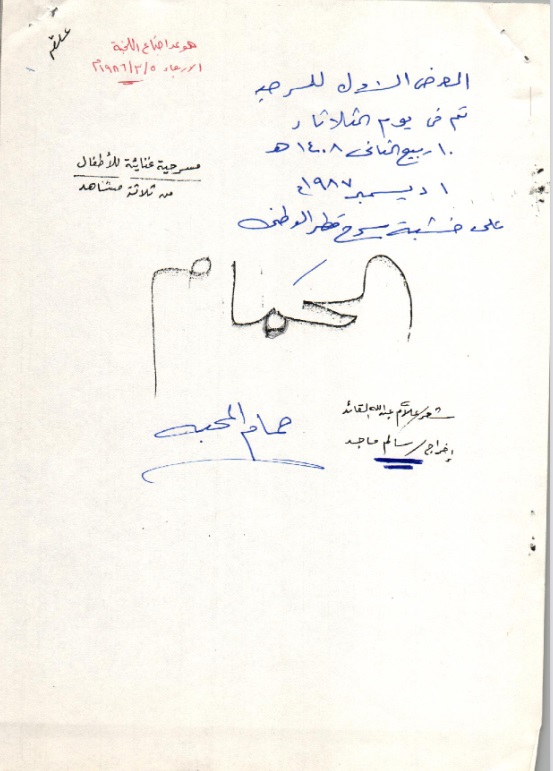 علام
موعد اجتماع اللجنة
الأربعاء ١٩٨٦/٢/٥م
العرض الأول للمسرحية
تم في يوم الثلاثاء
١٠ ربيع الثاني ١٤٠٨هـ
١ ديسمبر ١٩٨٧م
على خشبة مسرح قطر الوطني
مسرحية غنائية للأطفال
من ثلاثة مشاهد
الحمام
شعر/علام عبدالله القائد
إخراج/سالم ماجد
حمام المحبه